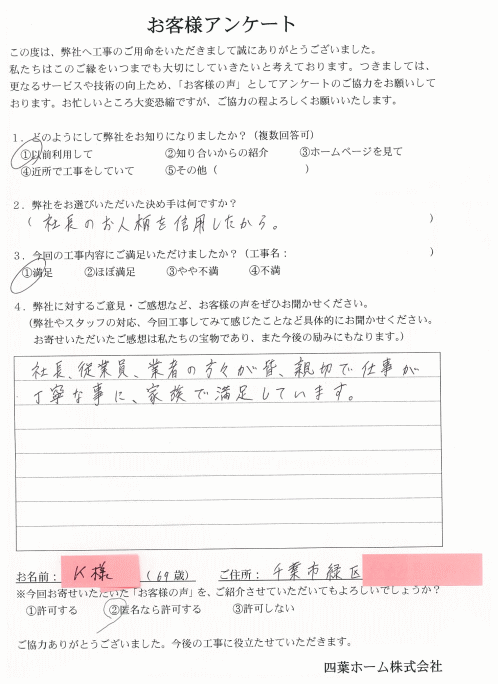 お客様アンケート
この度は、弊社へ工事のご用命をいただきまして誠にありがとうございました。
私たちはこのご縁をいつまでも大切にしていきたいと考えております。つきましては、
更なるサービスや技術の向上ため、「お客様の声」としてアンケートのご協力をお願いして
おります。お忙しいところ大変恐縮ですが、ご協力の程よろしくお願いいたします。
1．どのようにして弊社をお知りになりましたか？（複数回答可）
①以前利用して ②知り合いからの紹介 ③ホームページを見て
④近所で工事をしていて ⑤その他（ ）
2．弊社をお選びいただいた決め手は何ですか？
（ 社長のお人柄を信用したから。 ）
3．今回の工事内容にご満足いただけましたか？（工事名： ）
①満足 ②ほぼ満足 ③やや不満 ④不満
4．弊社に対するご意見・ご感想など、お客様の声をぜひお聞かせください。
（弊社やスタッフの対応、今回工事してみて感じたことなど具体的にお聞かせください。
お寄せいただいたご感想は私たちの宝物であり、また今後の励みにもなります。）
社長、従業員、業者の方々が皆、親切で仕事が
丁寧な事に、家族で満足しています。
お名前： K様 （69歳） ご住所： 千葉市緑区
※今回お寄せいただいた「お客様の声」を、ご紹介させていただいてもよろしいでしょうか？
①許可する ②匿名なら許可する ③許可しない
ご協力ありがとうございました。今後の工事に役立たせていただきます。
四葉ホーム株式会社